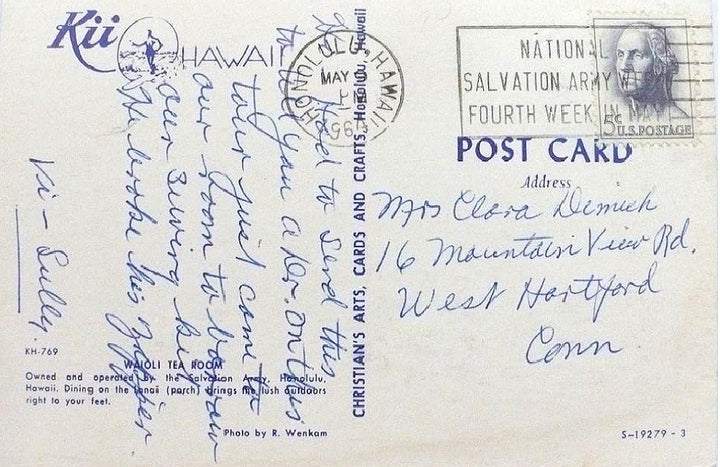 Kii
HAWAII
Had to send this
to tell you a Dr. on this
tour just came to
our room to borrow
our sewing kit
He broke his zipper
Vi - Sully.
KH-769
WAIOLI TEA ROOM
Owned and operated by the Salvation Army, Honolulu,
Hawaii. Dining on the lanai (porch) brings the lush outdoors
right to your feet.
Photo by R. Wenkam
CHRISTIAN'S ARTS, CARDS AND CRAFTS, Honolulu, Hawaii
HONOLULU, HAWAII
MAY
PM
NATIONAL
SALVATION ARMY WEEK
FOURTH WEEK IN MAY
5c
U.S. POSTAGE
POST CARD
Address
Mrs Clara Demick
16 Mountain View Rd.
West Hartford
Conn.
S-19279-3